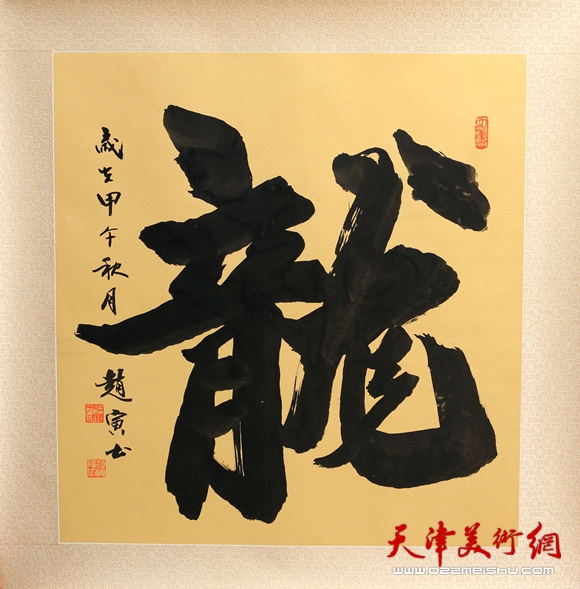 龍
歲在甲午秋月
趙寅书
天津美術網
www.022meishu.com